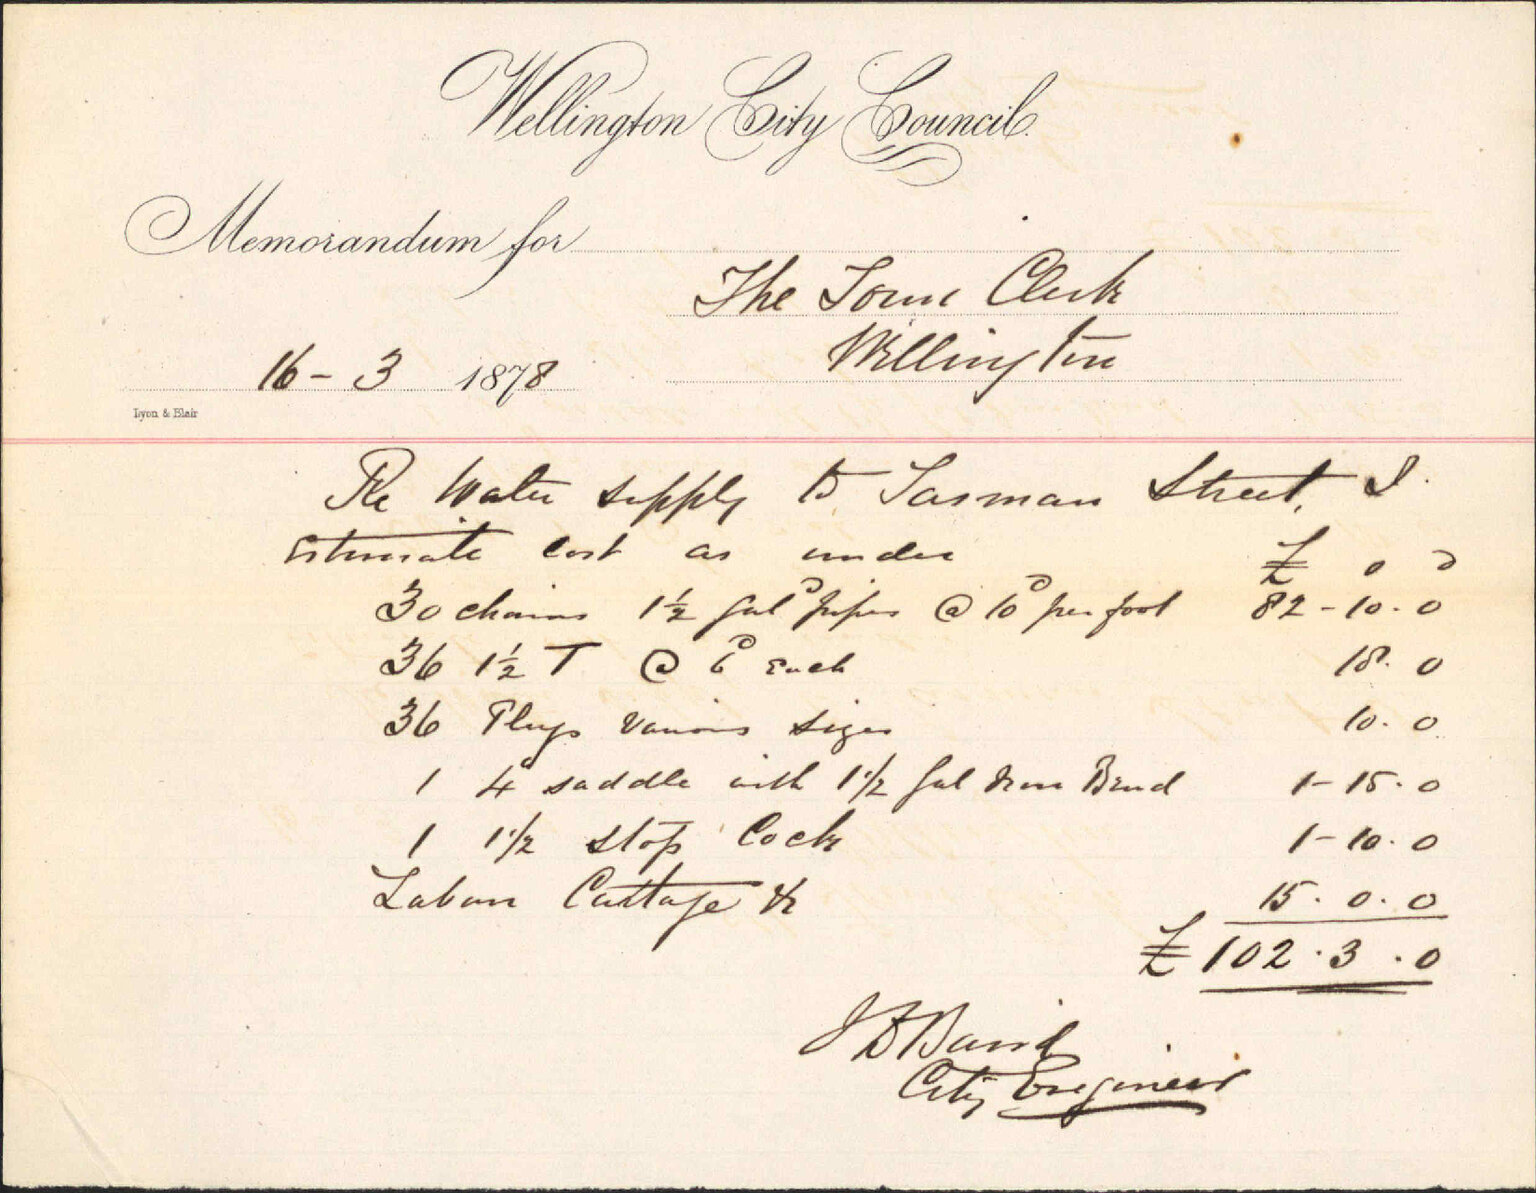 Wellington City Council.
Memorandum for
The Town Clerk
Wellington
16 - 3 1878
Lyon & Blair
Re Water supply to Tasman Street, I
estimate cost as under £ s d
30 chains 1½ gal pipes @ 10d per foot 82 - 10 - 0
36 1½ T @ 6d Each 18. 0
36 Plugs various sizes 10. 0
1 4 saddle with 1½ gal Iron Bend 1 - 15. 0
1 1½ stop Cock 1 - 10. 0
Labour Cattage &c 15. 0. 0
£ 102. 3. 0
J D Baird
City Engineer